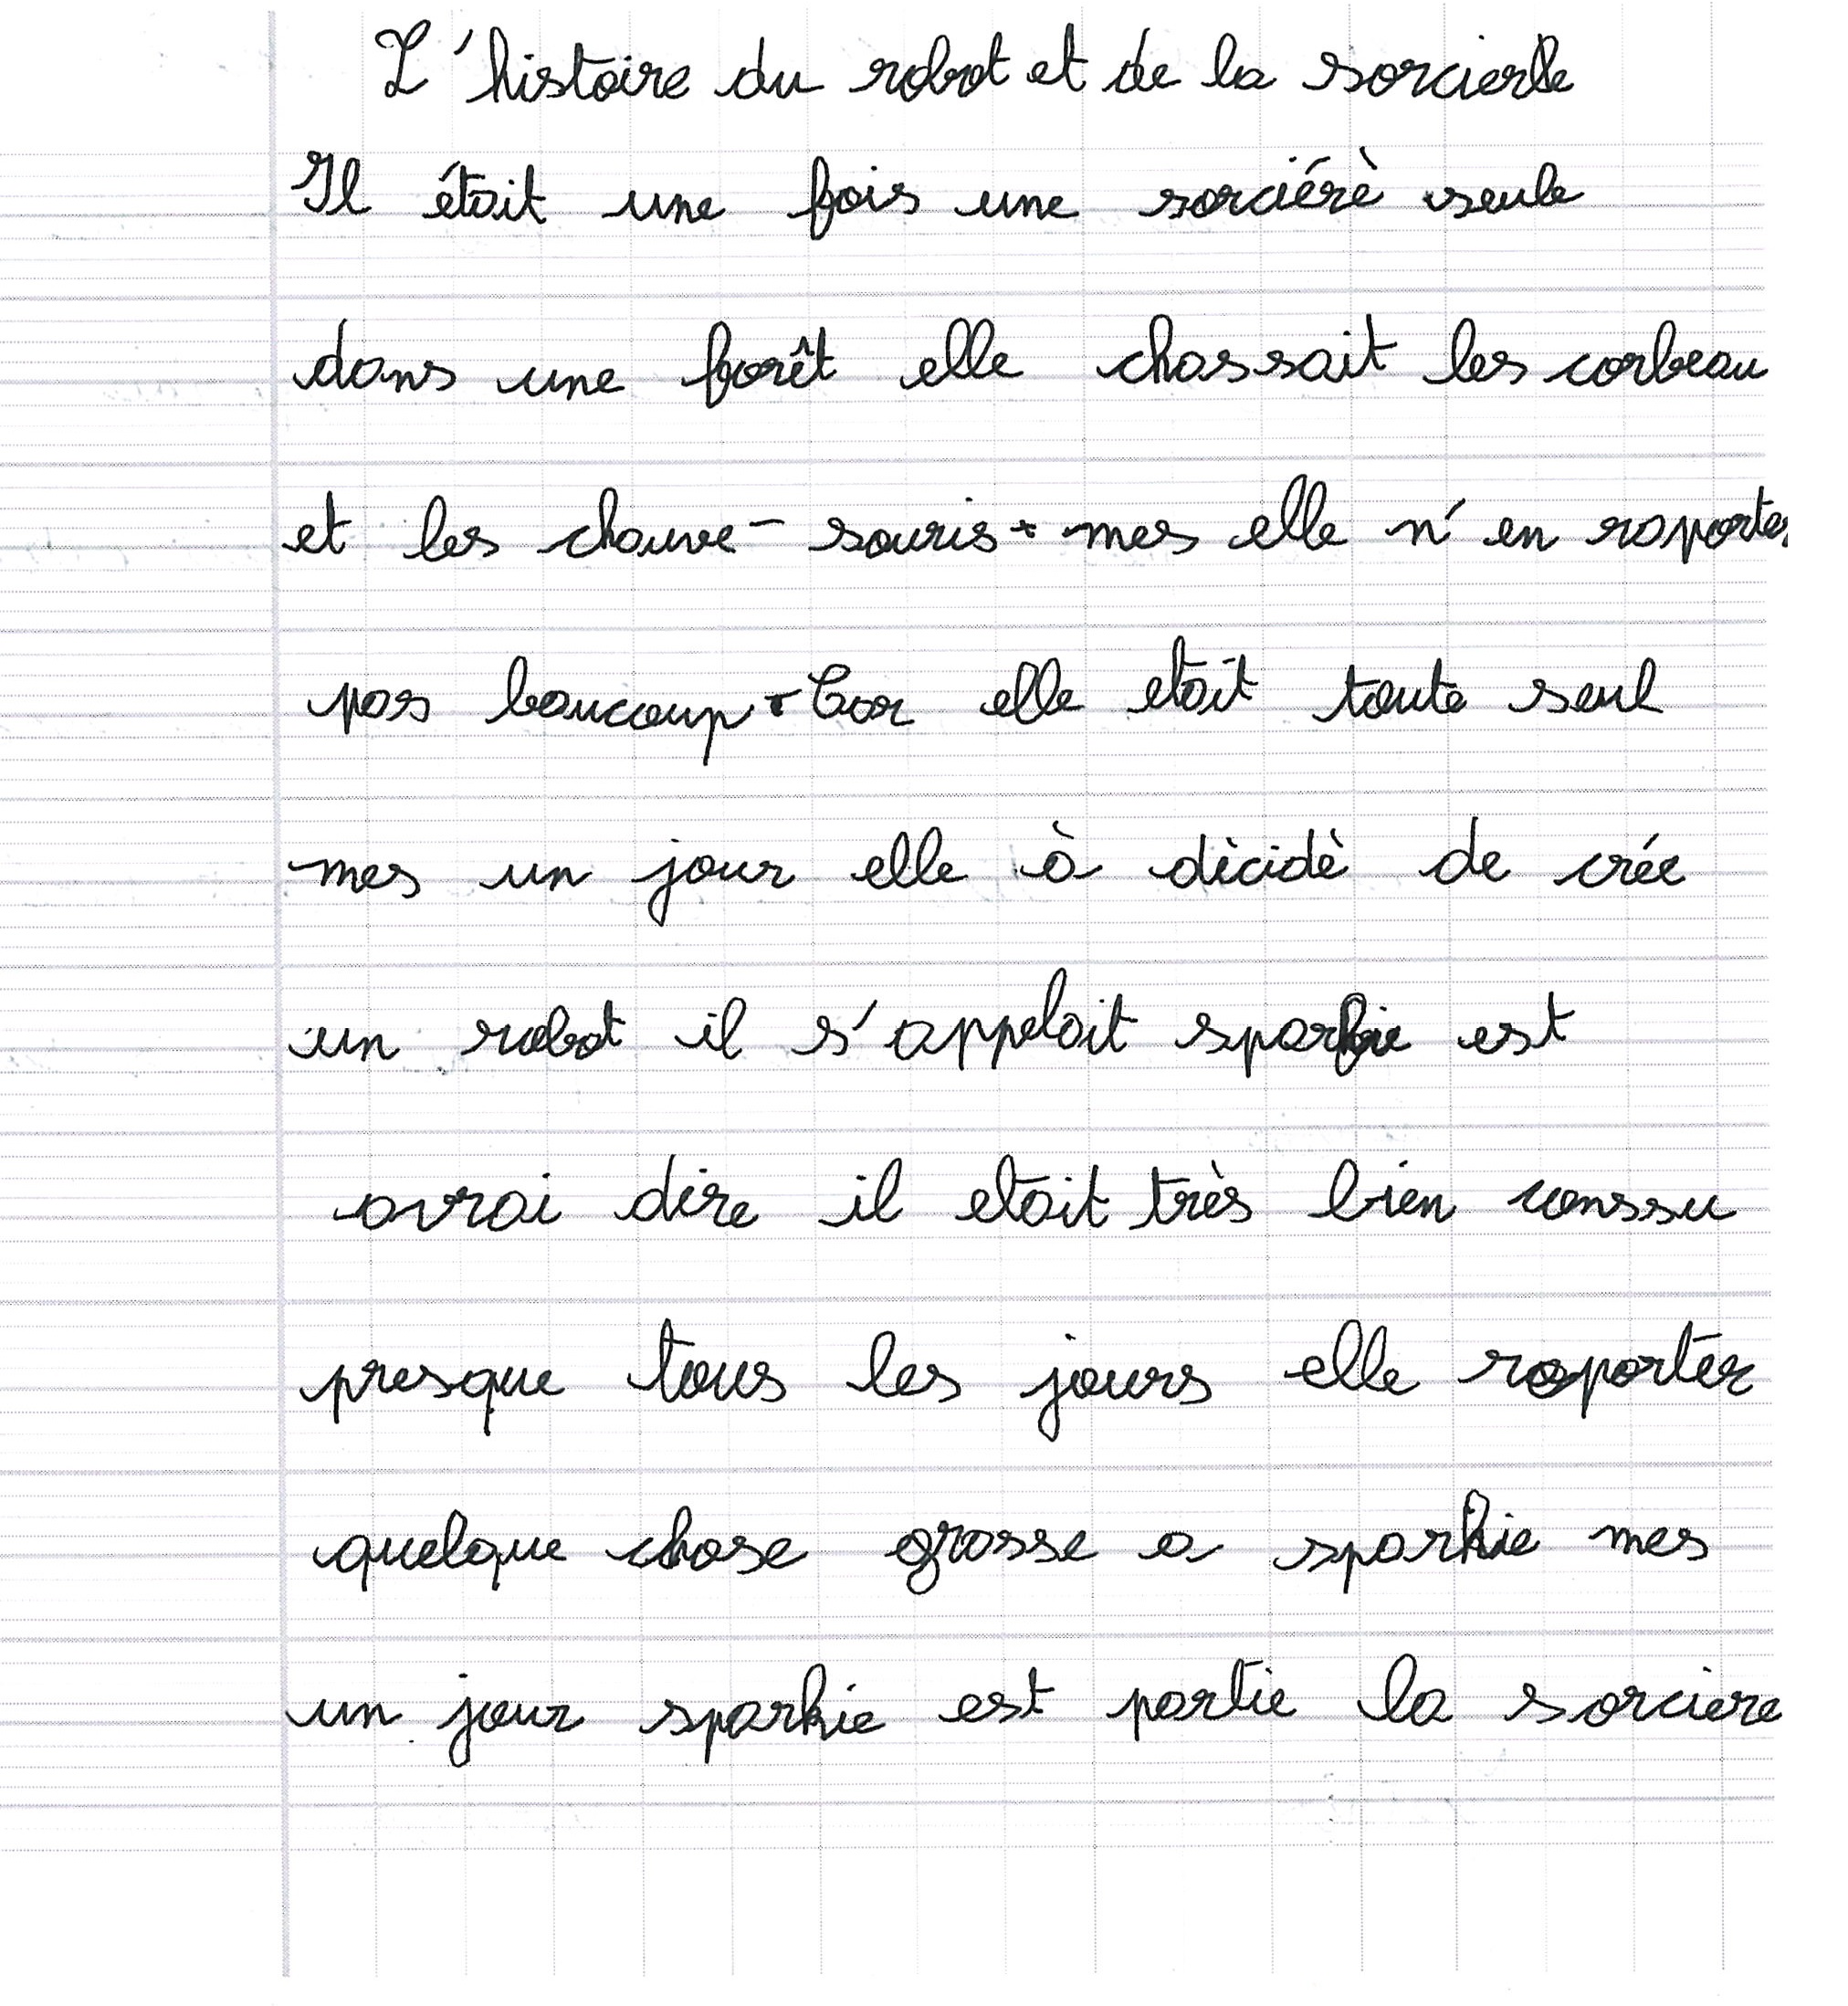 L'histoire du robot et de la sorcierle
Il était une fois une sorciérè seule
dans une forêt elle chassait les corbeau
et les chauve-souris. mes elle n'en raporter
pas baucoup. Car elle etait toute seul
mes un jour elle à dècidè de crée
un robot il s'appelait sparkie est
avrai dire il etait très bien conssu
presque tous les jours elle raporter
quelque chose grosse a sparkie mes
un jour sparkie est partie la sorciere